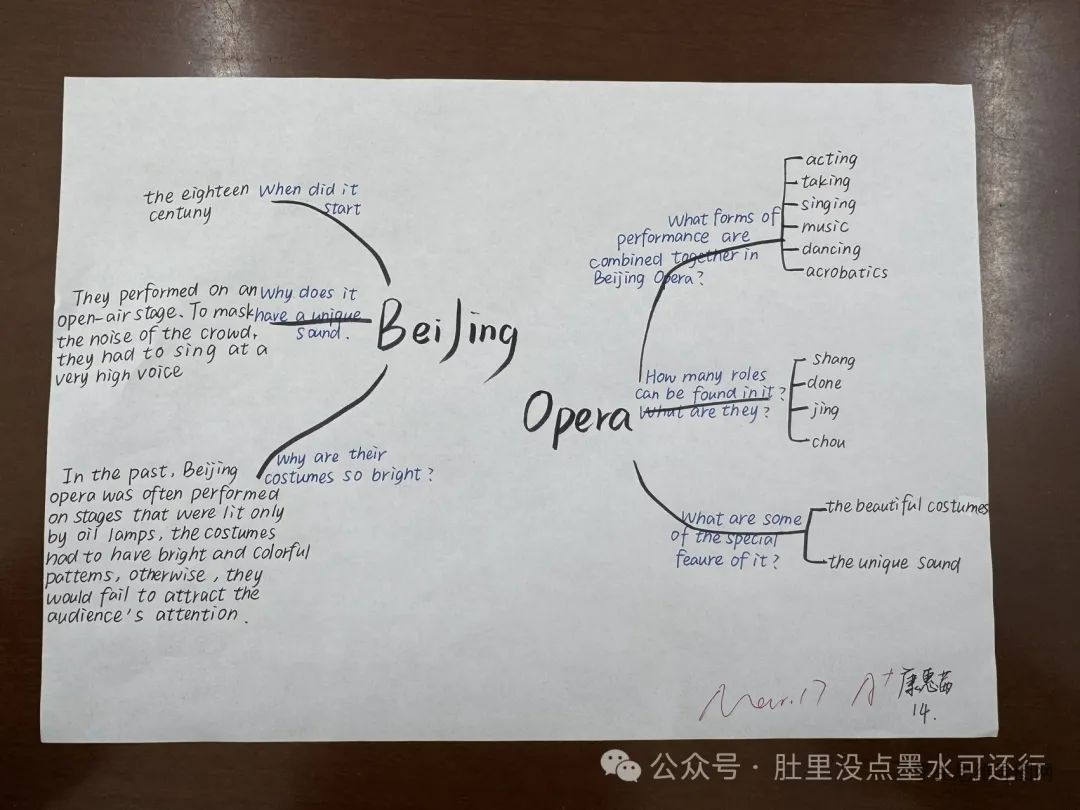 the eighteen
centuny
When did it
start
They performed on an
open-air stage. To mask
the noise of the crowd,
they had to sing at a
very high voice
Why does it
have a unique
sound.
In the past, Beijing
opera was often performed
on stages that were lit only
by oil lamps, the costumes
had to have bright and colorful
pattems, otherwise, they
would fail to attract the
audience's attention.
Why are their
costumes so bright?
BeiJing
Opera
What forms of
performance are
combined together in
Beijing Opera?
acting
taking
singing
music
dancing
acrobatics
How many roles
can be found in it?
What are they?
shang
done
jing
chou
What are some
of the special
feaure of it?
the beautiful costumes
the unique sound
Mar.17 A+
14.
公众号·肚里没点墨水可还行